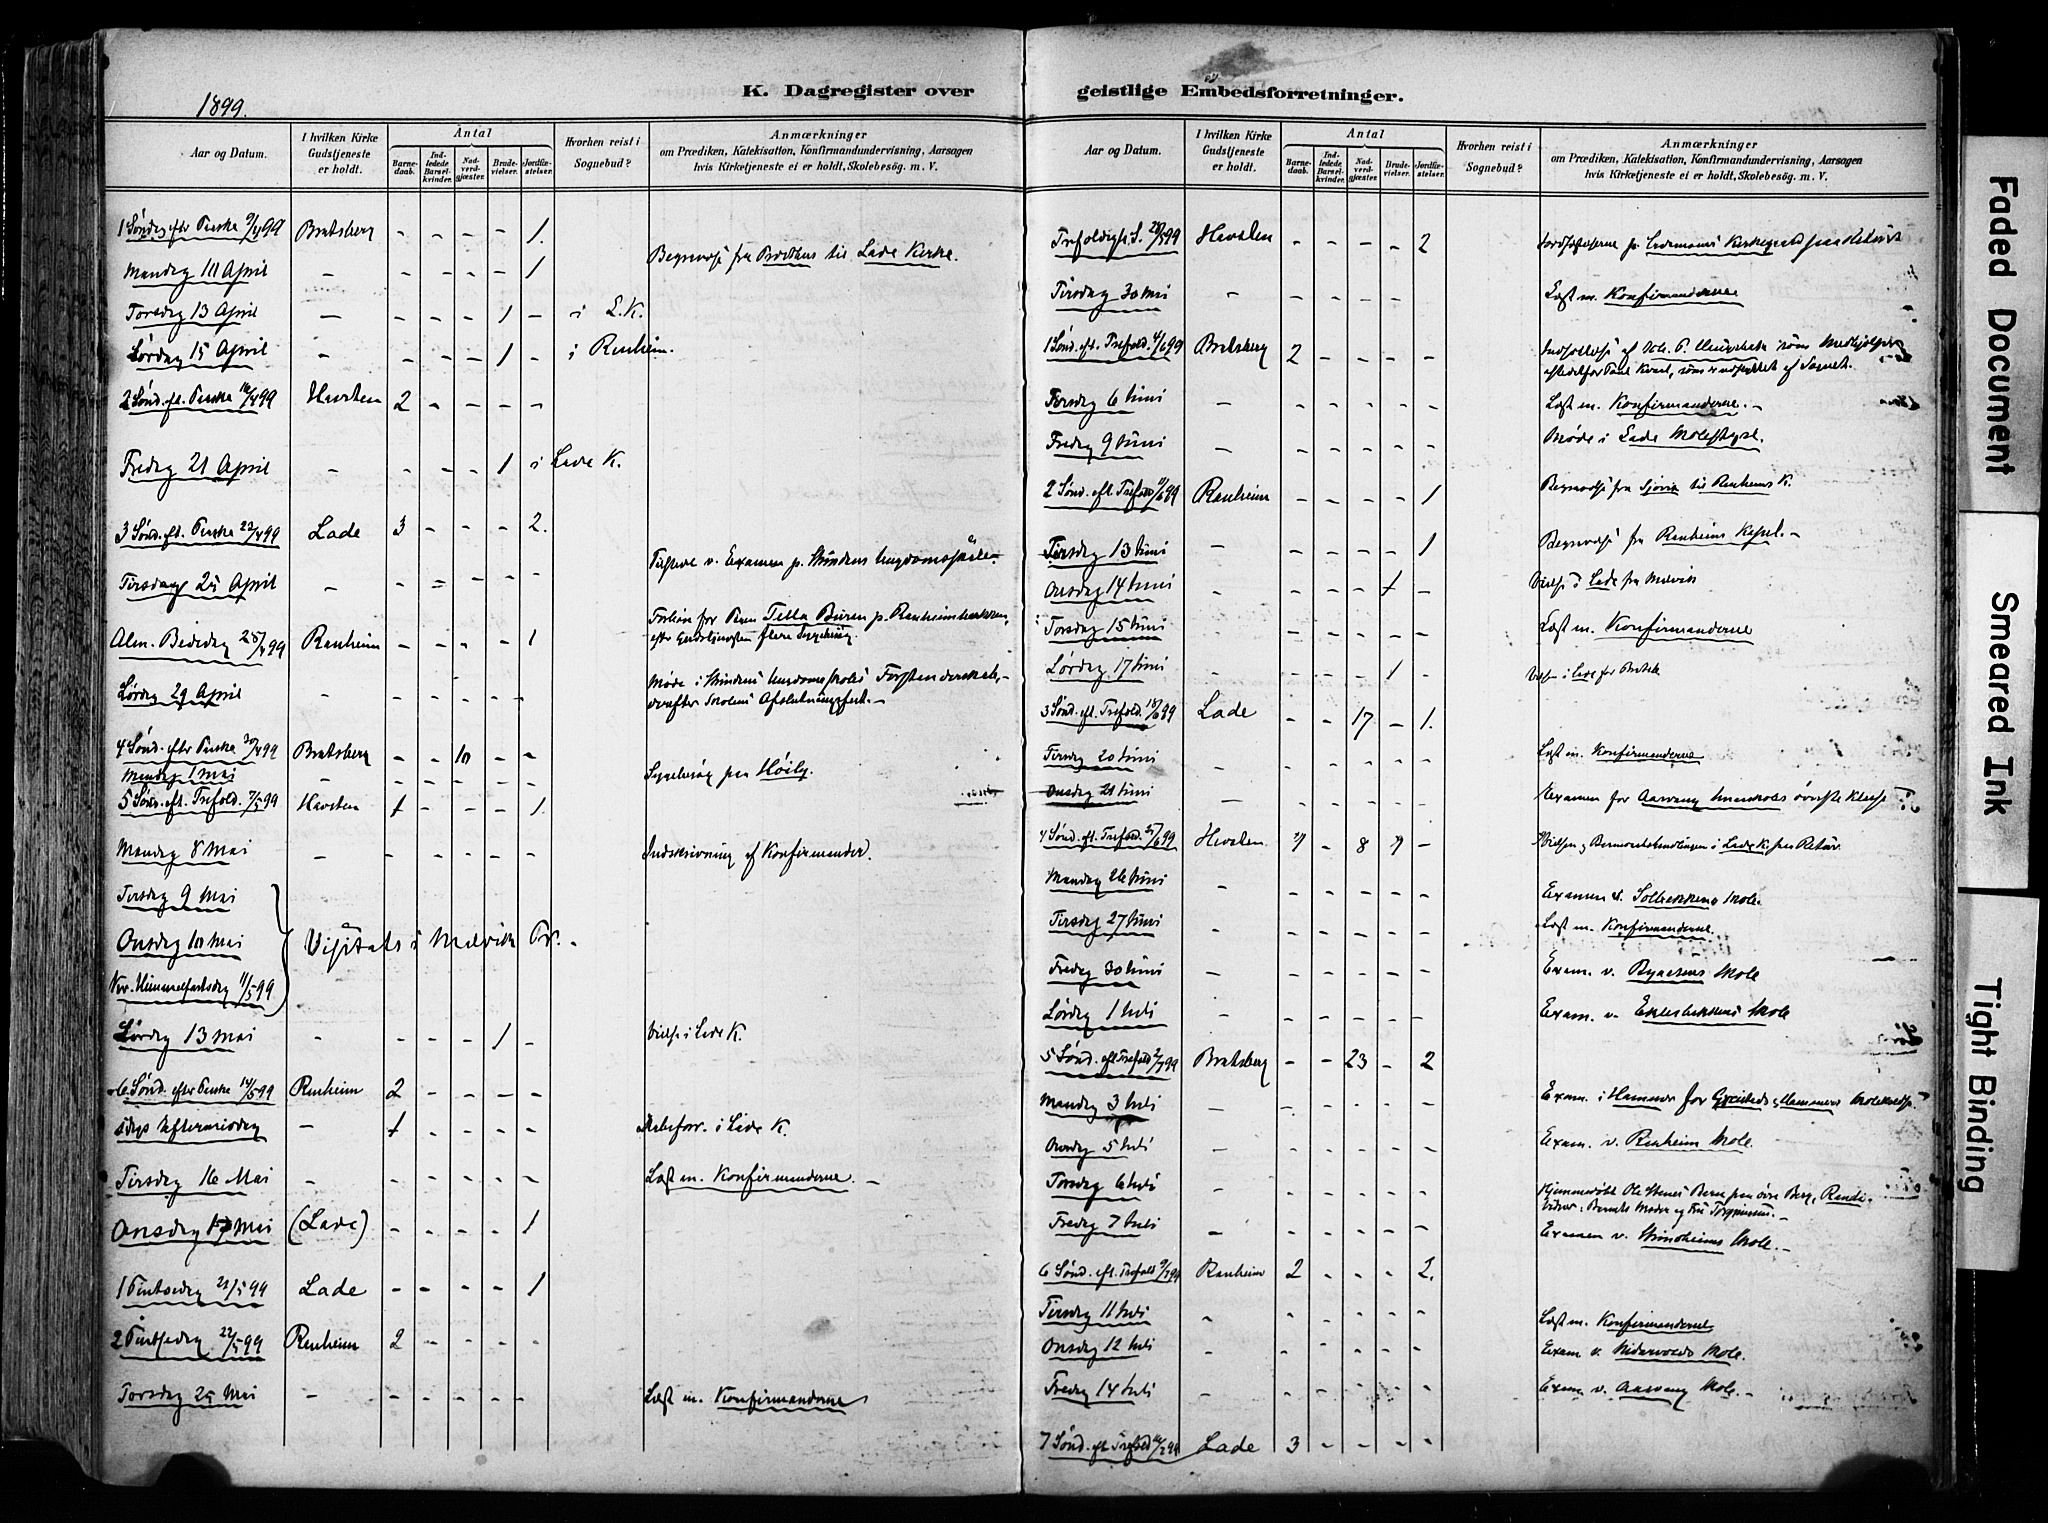 1899.
K. Dagregister over
Aar og Datum.
I hvilken Kirke Gudstjeneste er holdt.
Antal
Barnedaab.
Indledede Barselkvinder.
Nadverdgjæster.
Brudevielser.
Jordfæstelser.
Hvorhen reist i Sognebud?
Anmærkninger
om Prædiken, Katekisation, Konfirmandundervisning, Aarsagen
hvis Kirketjeneste ei er holdt, Skolebesøg. m. V.
1 Søndag efter Paaske 9/4 99 Bratsberg - - - - 1.
Mandag 10 April - - - - - 1 fra til Lade Kirke.
Torsdag 13 April - - - - 1 - i L. K.
Lørdag 15 April - - - - 1 - i Ranheim.
2 Sønd. eft. Paaske 16/4 99 Havsten 2 - - - -
Fredag 21 April - - - - 1 i Lade K.
3 Sønd. eft. Paaske 23/4 99 Lade 3 - - - 2.
Tirsdag 25 April - - = - - - Tilstede v. Examen p. Strindens Ungdomsskole.
Alm. Bededag 28/4 99 Ranheim - - - - 1
Lørdag 29 April - - - - - - Møde i Strindens Ungdomsskoles Forstanderskab, -
derefter Skolens Afslutningsfest. -
4 Sønd. efter Paaske 30/4 99 Bratsberg - - 10 - -
Mandag 1 Mai - - - - - - Sygebesøg paa
5 Sønd. eft. Trefold. 7/5 99 Havsten 1 - - - 1.
Mandag 8 Mai - - - - - - Indskrivning af Konfirmander.
Tirsdag 9 Mai
Onsdag 10 Mai Visitats i Malvik Pr. -
Kr. Himmelfartsdag 11/5 99
Lørdag 13 Mai - - - - 1 - Vielse i Lade K.
6 Sønd. efter Paaske 14/5 99 Ranheim 2 - - - -
s. dags Eftermiddag - 1 - - - - i Lade K.
Tirsdag 16 Mai - - - - - - Læst m. Konfirmanderne. -
Onsdag 17 Mai (Lade) - - - - 1
1 Pintsedag 21/5 99 Lade - - - - 1
2 Pintsedag 22/5 99 Ranheim 2 - - - -
Torsdag 25 Mai - - - - - - Læst m. Konfirmanderne
geistlige Embedsforretninger.
Aar og Datum.
I hvilken Kirke Gudstjeneste er holdt.
Antal
Barnedaab.
Indledede Barselkvinder.
Nadverdgjæster.
Brudevielser.
Jordfæstelser.
Hvorhen reist i Sognebud?
Anmærkninger
om Prædiken, Katekisation, Konfirmandundervisning, Aarsagen
hvis Kirketjeneste ei er holdt, Skolebesøg. m. V.
Trefoldigh. S. 28/5 99 Havsten - - - - 2 Jordfæstelserne p. Kirkegaard
Tirsdag 30 Mai - - - - - - Læst m. Konfirmanderne
1 Sønd. eft. Trefold. 4/6 99 Bratsberg 2 - - - - Indsættelse af som Medhjælper
istedetfor som er udflyttet af Sognet.
Tirsdag 6 Juni - - - - - - Læst m. Konfirmanderne. -
Fredag 9 Juni - - - - - - Møde i Lade Skolestyre.
2 Sønd. eft. Trefold. 11/6 99 Ranheim - - - - 1 fra til Ranheims K.
Tirsdag 13 Juni - - - - - 1 fra Ranheims Kapel. -
Onsdag 14 Juni - - - - 1 - Vielse i Lade fra Malvik
Torsdag 15 Juni - - - - - - Læst m. Konfirmanderne
Lørdag 17 Juni - - - - 1 - Vielsen i Lade for Bratsb.
3 Sønd. eft. Trefold. 18/6 99 Lade - - 17 - 1.
Tirsdag 20 Juni - - - - - Læst m. Konfirmanderne
Onsdag 21 Juni - - - - - - Examen for Aasvang Smaaskoles øverste Klasse
4 Sønd. eft. Trefold. 25/6 99 Havsten 1 - 8 1 - Vielsen og i Lade K. paa Retur.
Mandag 26 Juni - - - - - - Examen v. Solbakkens Skole.
Tirsdag 27 Juni - - - - - - Læst m. Konfirmanderne.
Fredag 30 Juni - - - - - - Exam. v. Skole
Lørdag 1 Juli - - - - - - Exam. v. Eklesbakkens Skole
5 Sønd. eft. Trefold. 2/7 99 Bratsberg - - 23 - 2
Mandag 3 Juli - - - - - - Exam. i Hammer for og Hammers
Onsdag 5 Juli - - - - - - Exam. v. Ranheim Skole.
Torsdag 6 Juli - - - - - - Hjemmedøbt Ole Barn paa øvre Berg,
Fredag 7 Juli - - - - - - Examen v. Strindheims Skole. -
6 Sønd. eft. Trefold. 9/7 99 Ranheim 2 - - - 2.
Tirsdag 11 Juli - - - - - - Læst m. Konfirmanderne
Onsdag 12 Juli - - - - - - Exam v. Nidarvolds Skole.
Fredag 14 Juli - - - - - - Exam v. Aasvang Skole. -
7 Sønd. eft. Trefold. 16/7 99 Lade 3 - - - -
Faded Document
Smeared Ink
Tight Binding